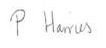 P Harries